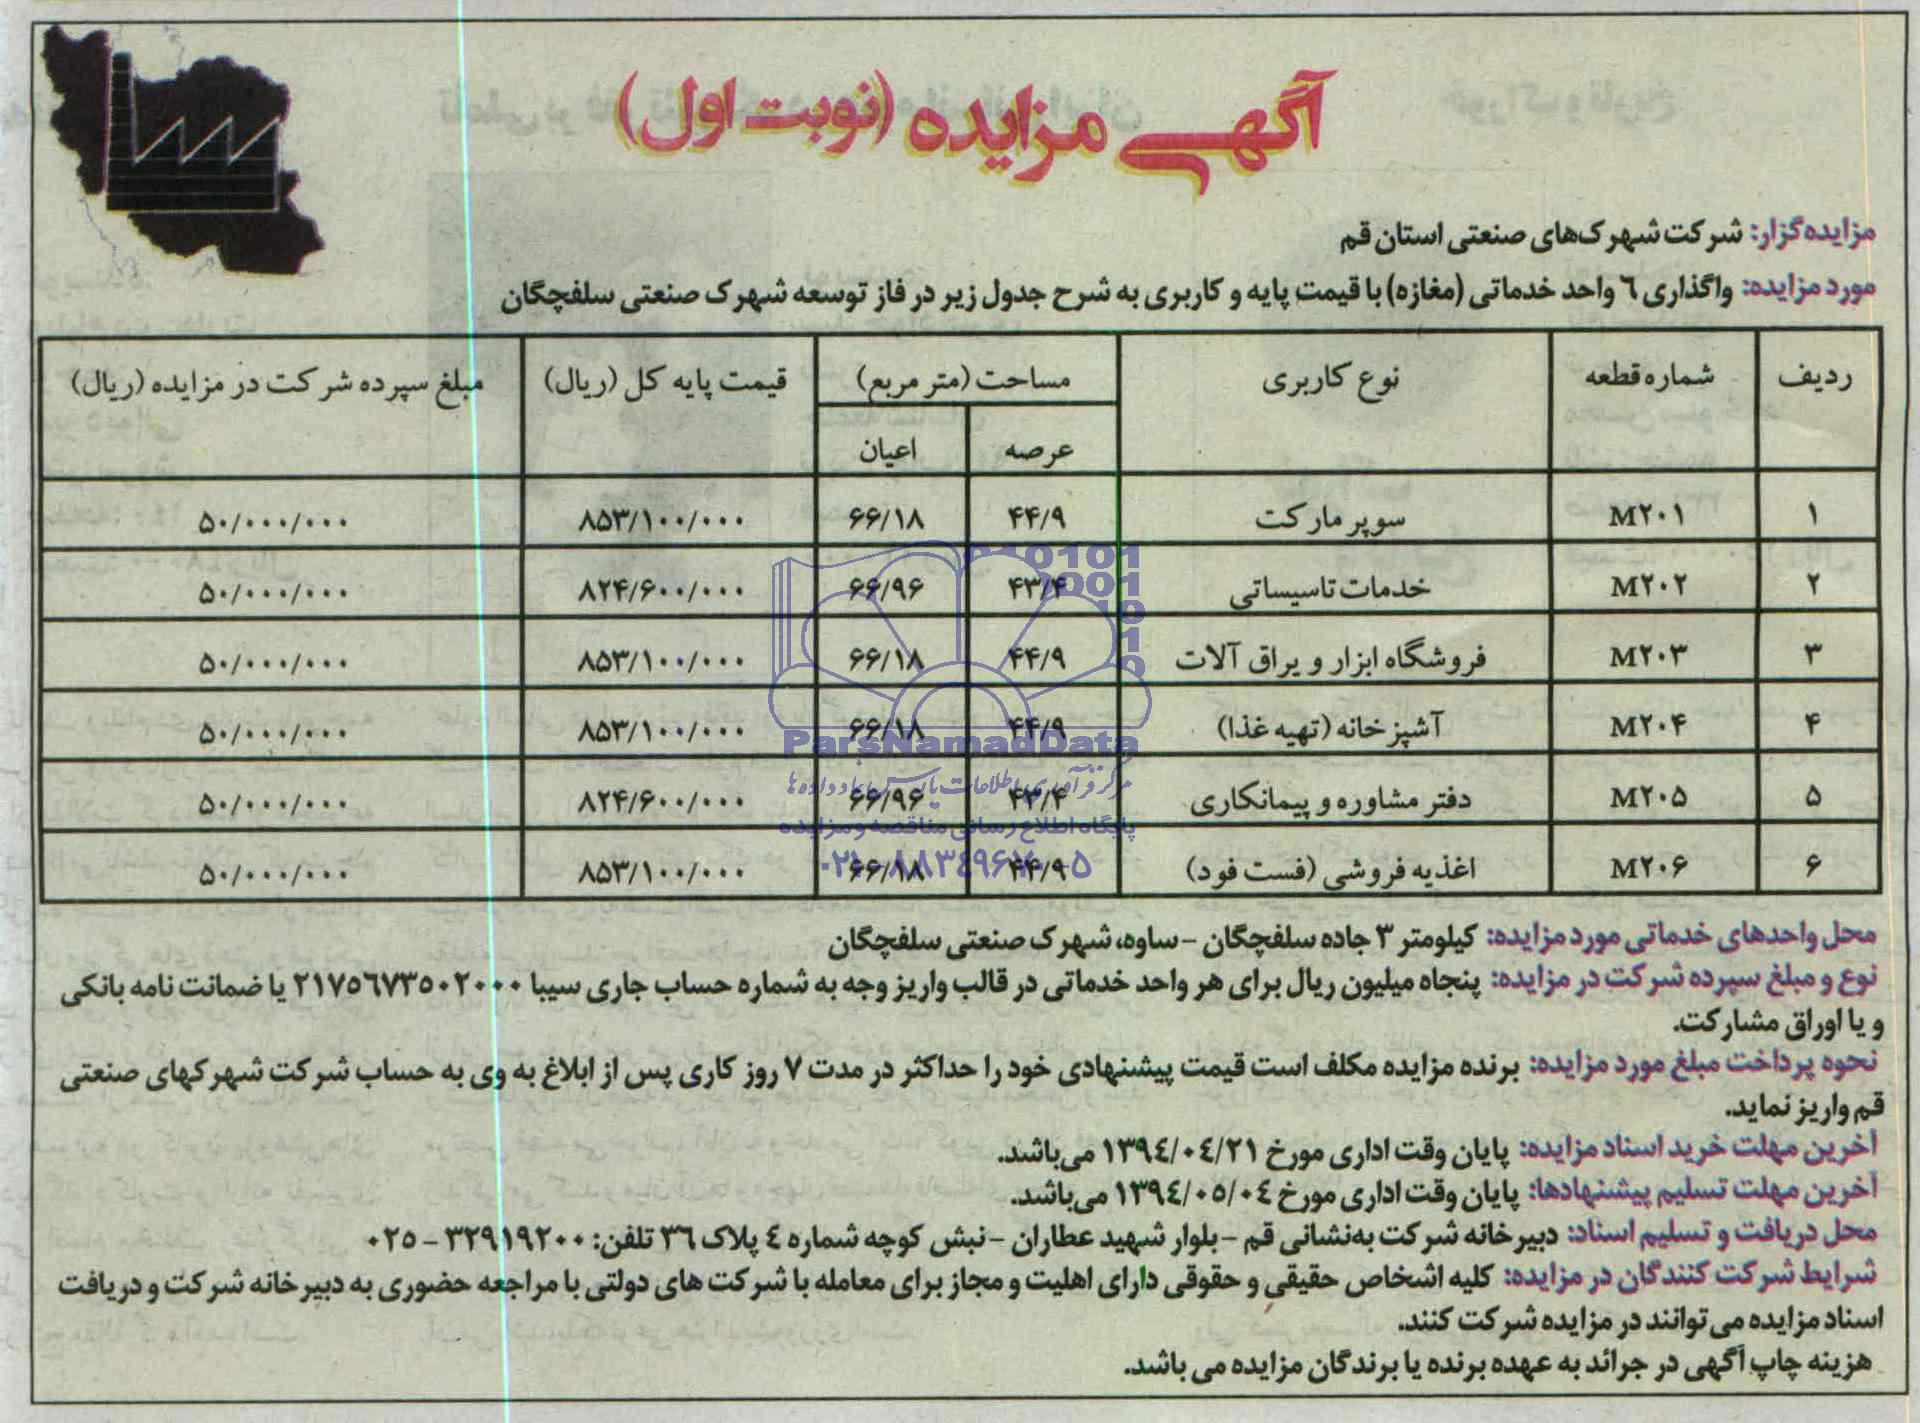 آگهی مزایده (نوبت اول)
مزایده‌گزار: شرکت شهرک‌های صنعتی استان قم
مورد مزایده: واگذاری ٦ واحد خدماتی (مغازه) با قیمت پایه و کاربری به شرح جدول زیر در فاز توسعه شهرک صنعتی سلفچگان
ردیف شماره قطعه نوع کاربری مساحت (متر مربع) قیمت پایه کل (ریال) مبلغ سپرده شرکت در مزایده (ریال)
عرصه اعیان
۱ M۲۰۱ سوپر مارکت ۴۴/۹ ۶۶/۱۸ ۸۵۳/۱۰۰/۰۰۰ ۵۰/۰۰۰/۰۰۰
۲ M۲۰۲ خدمات تاسیساتی ۴۳/۴ ۶۶/۹۶ ۸۲۴/۶۰۰/۰۰۰ ۵۰/۰۰۰/۰۰۰
۳ M۲۰۳ فروشگاه ابزار و یراق آلات ۴۴/۹ ۶۶/۱۸ ۸۵۳/۱۰۰/۰۰۰ ۵۰/۰۰۰/۰۰۰
۴ M۲۰۴ آشپزخانه (تهیه غذا) ۴۴/۹ ۶۶/۱۸ ۸۵۳/۱۰۰/۰۰۰ ۵۰/۰۰۰/۰۰۰
۵ M۲۰۵ دفتر مشاوره و پیمانکاری ۴۳/۴ ۶۶/۹۶ ۸۲۴/۶۰۰/۰۰۰ ۵۰/۰۰۰/۰۰۰
۶ M۲۰۶ اغذیه فروشی (فست فود) ۴۴/۹ ۶۶/۱۸ ۸۵۳/۱۰۰/۰۰۰ ۵۰/۰۰۰/۰۰۰
ParsNamadData
مرکز فرآوری اطلاعات پارس نماد داده ها
پایگاه اطلاع رسانی مناقصه و مزایده
۰۲۱-۸۸۳٤۹۶۷۰-۵
محل واحدهای خدماتی مورد مزایده: کیلومتر ۳ جاده سلفچگان - ساوه، شهرک صنعتی سلفچگان
نوع و مبلغ سپرده شرکت در مزایده: پنجاه میلیون ریال برای هر واحد خدماتی در قالب واریز وجه به شماره حساب جاری سیبا ۲۱۷۵٦۷۳۵۰۲۰۰۰ یا ضمانت نامه بانکی
و یا اوراق مشارکت.
نحوه پرداخت مبلغ مورد مزایده: برنده مزایده مکلف است قیمت پیشنهادی خود را حداکثر در مدت ۷ روز کاری پس از ابلاغ به وی به حساب شرکت شهرکهای صنعتی
قم واریز نماید.
آخرین مهلت خرید اسناد مزایده: پایان وقت اداری مورخ ۱۳۹٤/۰٤/۲۱ می‌باشد.
آخرین مهلت تسلیم پیشنهادها: پایان وقت اداری مورخ ۱۳۹٤/۰۵/۰٤ می‌باشد.
محل دریافت و تسلیم اسناد: دبیرخانه شرکت به‌نشانی قم - بلوار شهید عطاران - نبش کوچه شماره ٤ پلاک ۳٦ تلفن: ۳۲۹۱۹۲۰۰ - ۰۲۵
شرایط شرکت کنندگان در مزایده: کلیه اشخاص حقیقی و حقوقی دارای اهلیت و مجاز برای معامله با شرکت های دولتی با مراجعه حضوری به دبیرخانه شرکت و دریافت
اسناد مزایده می‌توانند در مزایده شرکت کنند.
هزینه چاپ آگهی در جرائد به عهده برنده یا برندگان مزایده می باشد.